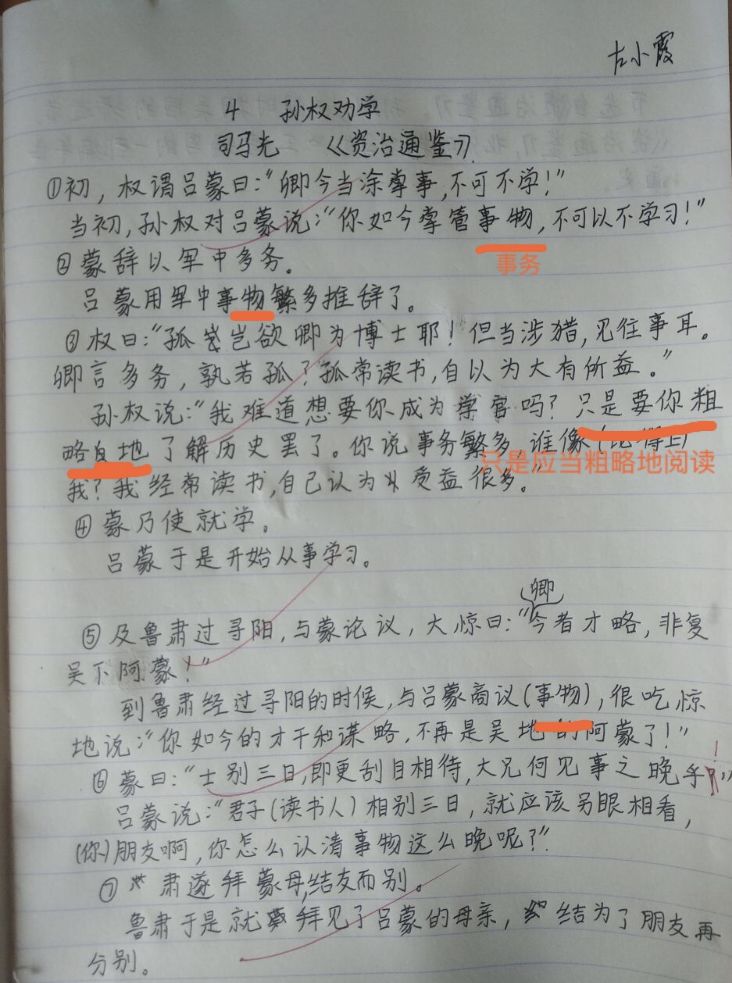 古小霞
4 孙权劝学
司马光 《资治通鉴》
①初，权谓吕蒙曰：“卿今当涂掌事，不可不学！”
当初，孙权对吕蒙说：“你如今掌管事物，不可以不学习！”
事务
②蒙辞以军中多务。
吕蒙用军中事物繁多推辞了。
③权曰：“孤岂欲卿为博士耶！但当涉猎，见往事耳。
卿言多务，孰若孤？孤常读书，自以为大有所益。”
孙权说：“我难道想要你成为学官吗？只是要你粗
略地了解历史罢了。你说事务繁多，谁像（比得上）
只是应当粗略地阅读
我？我经常读书，自己认为受益很多。”
④蒙乃使就学。
吕蒙于是开始从事学习。
卿
⑤及鲁肃过寻阳，与蒙论议，大惊曰：“今者才略，非复
吴下阿蒙！”
到鲁肃经过寻阳的时候，与吕蒙商议（事物），很吃惊
地说：“你如今的才干和谋略，不再是吴地的阿蒙了！”
⑥蒙曰：“士别三日，即更刮目相待，大兄何见事之晚乎！”
吕蒙说：“君子（读书人）相别三日，就应该另眼相看，
（你）朋友啊，你怎么认清事物这么晚呢？”
⑦肃遂拜蒙母，结友而别。
鲁肃于是就拜见了吕蒙的母亲，结为了朋友再
分别。